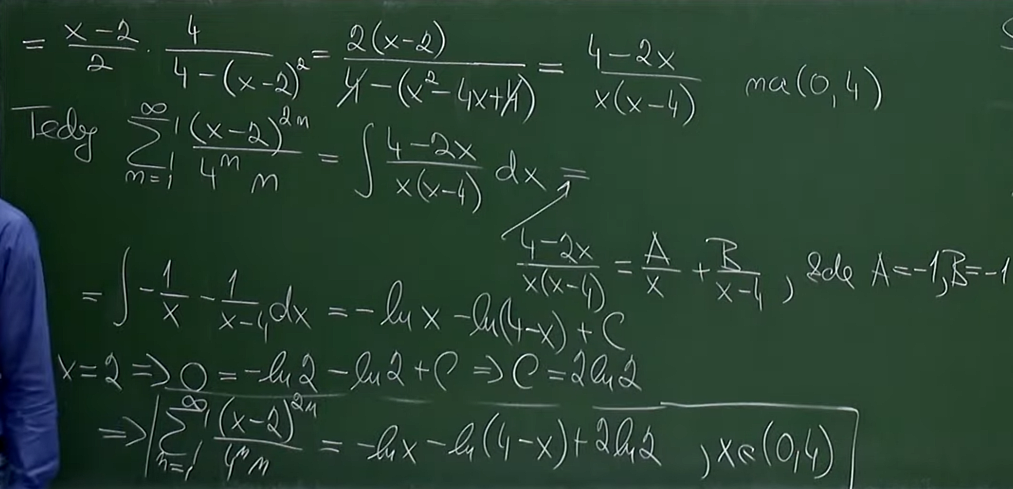 = \frac{x-2}{2} \cdot \frac{4}{4-(x-2)^2} = \frac{2(x-2)}{4-(x^2-4x+4)} = \frac{4-2x}{x(x-4)} na (0,4)
Tedy \sum_{n=1}^{\infty} \frac{(x-2)^{2n}}{4^n n} = \int \frac{4-2x}{x(x-4)} dx =
\frac{4-2x}{x(x-4)} = \frac{A}{x} + \frac{B}{x-4}, zde A=-1, B=-1
= \int -\frac{1}{x} - \frac{1}{x-4} dx = -ln x - ln(4-x) + C
x=2 ⇒ 0 = -ln2 - ln2 + C ⇒ C = 2ln2
⇒ \sum_{n=1}^{\infty} \frac{(x-2)^{2n}}{4^n n} = -lnx - ln(4-x) + 2ln2, x∈(0,4)